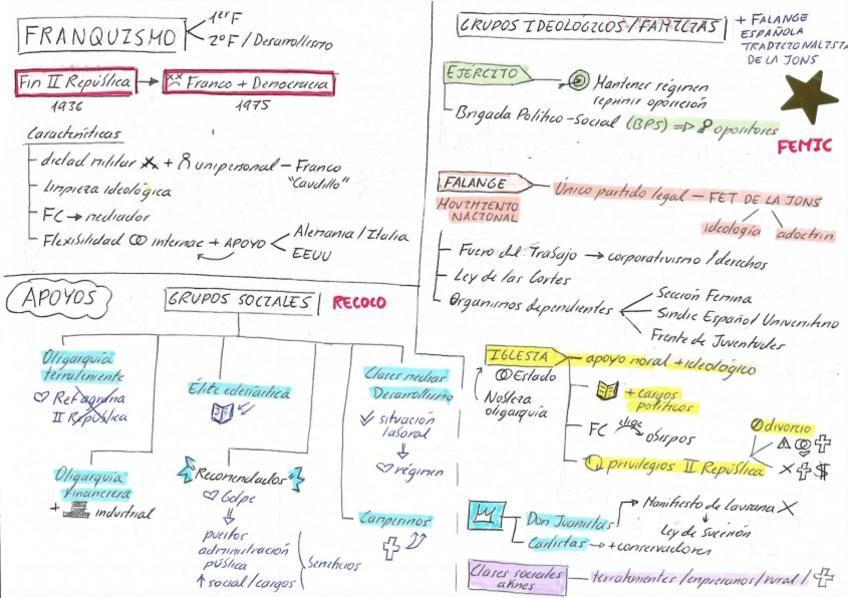 FRANQUISMO
1erF
2ºF / Desarrollismo
Fin II República
Franco + Democracia
1936
1975
Características
dictad militar + unipersonal - Franco
"Caudillo"
limpieza ideológica
FC → mediador
Flexibilidad internac + APOYO
Alemania / Italia
EEUU
APOYOS
GRUPOS SOCIALES
RECOCO
Oligarquía
terrateniente
Ref agraria
II República
Oligarquía
financiera
+ industrial
Élite eclesiástica
"Recomendados"
Golpe
puestos
administración
pública
↑ social/cargos
beneficios
Clases medias
Desarrollismo
situación
laboral
régimen
Campesinos
GRUPOS IDEOLÓGICOS / FAMILIAS
+ FALANGE
ESPAÑOLA
TRADICIONALISTA
DE LA JONS
EJÉRCITO
Mantener régimen
reprimir oposición
Brigada Político-Social (BPS) ⇒ opositores
FEMIC
FALANGE
MOVIMIENTO
NACIONAL
Único partido legal - FET DE LA JONS
ideología
adoctrin
Fuero del Trabajo → corporativismo / derechos
Ley de las Cortes
Organismos dependientes
Sección Femina
Sindic Español Universitario
Frente de Juventudes
IGLESIA
apoyo moral + ideológico
Estado
Nobleza
oligarquía
+ cargos
políticos
FC elige obispos
privilegios II República
divorcio
Don Juanistas
Manifiesto de Lausana X
Ley de Sucesión
Carlistas → + conservadores
Clases sociales
afines
terratenientes / empresarios / rural /